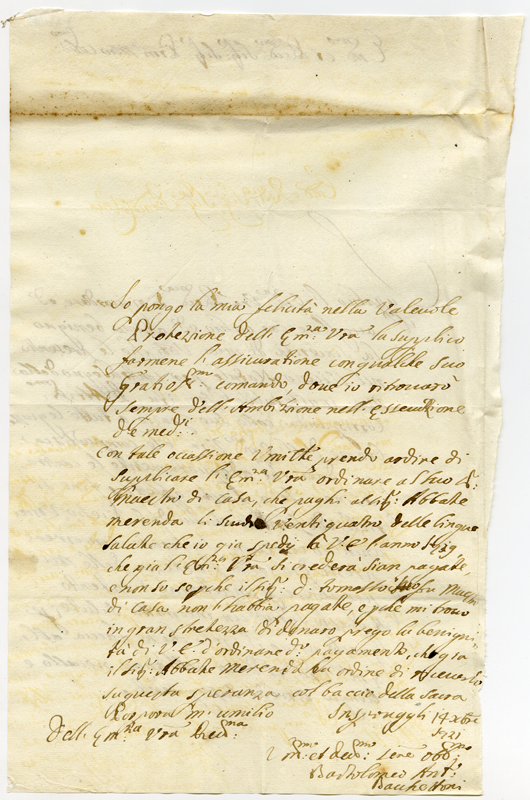 Io pongo la mia felicità nella Valeuole
Protezione dell Em:za Vrã la supplico
farmene l'assicuratione con qualche suo
gratiosmo comando, doue io ritrouarò
sempre dell'Ambizione nell'essecutione
de med:i
Con tale occassione Vmilte prendo ordine di
supplicare l'Em:za Vrã ordinare al suo
Maestro di Casa, che paghi al sig: Abbate
merenda li scudi Venti quattro delle lingue
salate che io già spedij à V E l'anno
che già l'Em:za Vrã si crederà sian pagate,
e non so se che il sig: d: tomasso suo Maestro
di Casa non l'habbia pagate, e pche mi trouo
in gran stretezza di denaro prego la benigni-
tà di V: E: d'ordinare d: pagamento, che già
il sig: Abbate Merenda ha ordine di riceuerli,
su questa speranza col baccio della Sacra
Porpora m: umilio
Dell Em:za Vrã Reu:ma
V:mo et deu:mo Serre obb:mo
Bartholomeo Ant:o
Bacchettoni